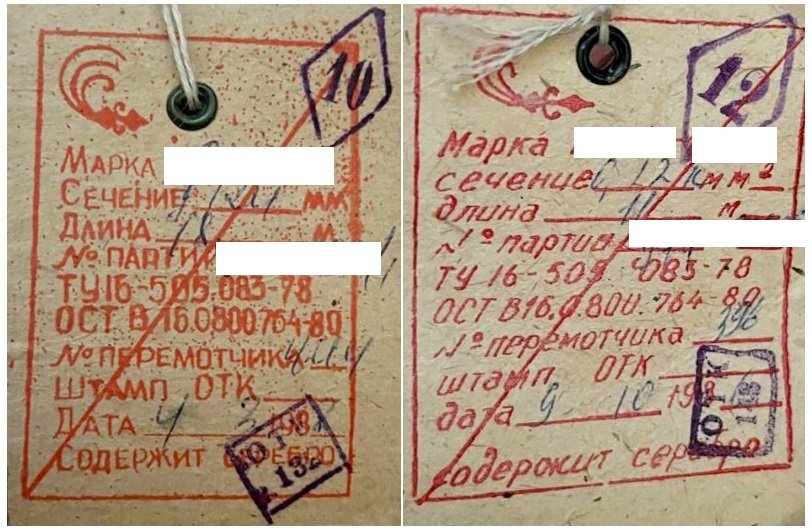 10
МАРКА
СЕЧЕНИЕ мм
ДЛИНА М
№ ПАРТИИ
ТУ16-505.083-78
ОСТ В 16.0800.764-80
№ ПЕРЕМОТЧИКА
ШТАМП ОТК
ДАТА 4 3 198
СОДЕРЖИТ СЕРЕБРО
ОТК
132
12
Марка
сечение 0,12 мм2
длина м
№ партии
ТУ 16-505.083-78
ОСТ В16.0.800.764-80
№ перемотчика 396
штамп ОТК
дата 9. 10 198
содержит серебро
ОТК